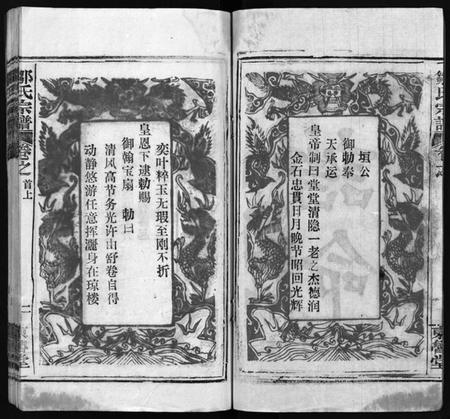 垣公
御勅奉
天承运
皇帝制曰堂堂清隐一老之杰德润
金石忠貫日月晚节昭回光辉
诰命
奕叶粹玉无瑕至刚不折
皇恩下逮勅賜
御翰宝扇 勅曰
清风高节务光许由舒卷自得
动静悠游任意挥灑身在琼楼
鄒氏宗譜
卷之
首上
一
堂